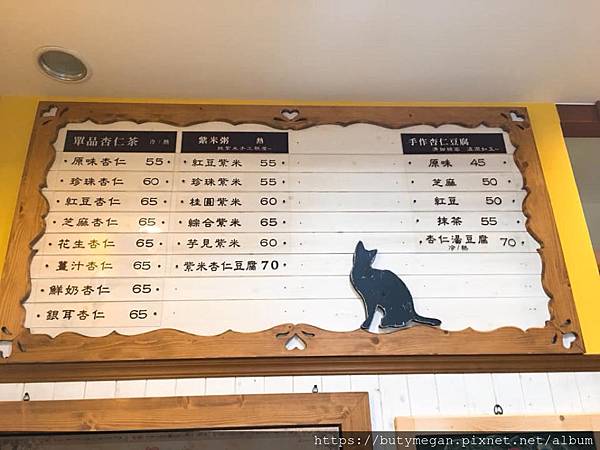 單品杏仁茶 冷/熱
原味杏仁 55
珍珠杏仁 60
紅豆杏仁 65
芝麻杏仁 65
花生杏仁 65
薑汁杏仁 65
鮮奶杏仁 65
銀耳杏仁 65
紫米粥 熱
紅豆紫米 55
珍珠紫米 55
桂圓紫米 60
綜合紫米 65
芋見紫米 60
紫米杏仁豆腐 70
手作杏仁豆腐
原味 45
芝麻 50
紅豆 50
抹茶 55
杏仁湯豆腐 70
冷/熱
https://butymegan.pixnet.net/album